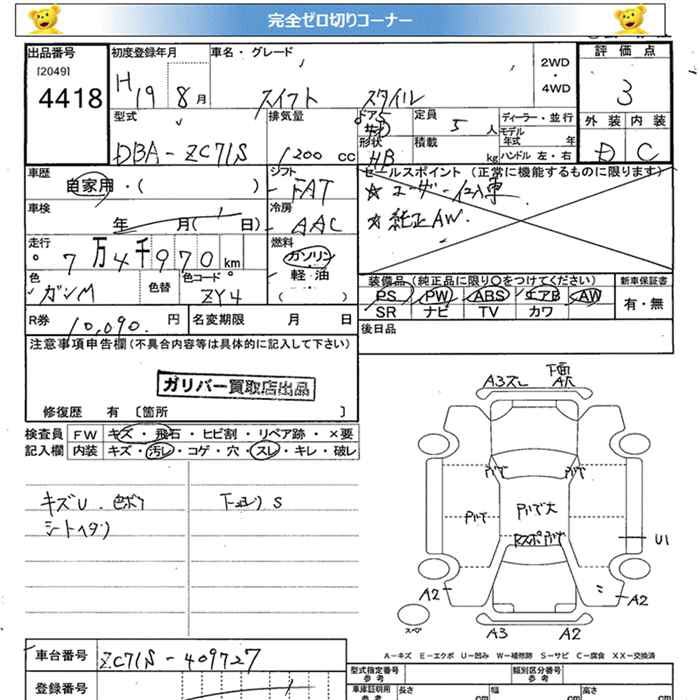 完全ゼロ切りコーナー
出品番号
[2049]
4418
初度登録年月
H 19 8月
車名・グレード
スイフト スタイル
2WD
・
4WD
評価点
3
外装 内装
D C
型式
DBA-ZC71S
排気量
1200 cc
ドア 5
形状
HB
定員
5 人
積載
kg
ディーラー・並行
モデル
年式 年
ハンドル 左・右
車歴
自家用・( )
シフト
FAT
車検
年 月( 日)
冷房
AAC
走行
7万4千970km
燃料
ガソリン
・
軽・油
( )
色
ガンM
色替
色コード
ZY4
R券 10,090. 円
名変期限 月 日
セールスポイント(正常に機能するものに限ります)
☆ユーザー
☆純正AW.
装備品(純正品に限り○をつけてください)
PS PW ABS エアB AW
SR ナビ TV カワ
新車保証書
有・無
後日品
注意事項申告欄(不具合内容等は具体的に記入して下さい)
ガリバー買取店出品
修復歴 有 〔箇所 〕
検査員
記入欄
FW キズ・飛石・ヒビ割・リペア跡・×要
内装 キズ・汚レ・コゲ・穴・スレ・キレ・破レ
キズU.
S
下面
A3
U1
A2
A2
A3
A2
スペア
A-キズ E-エクボ U-凹み W-補修跡 S-サビ C-腐食 XX-交換済
車台番号
ZC71S-409727
登録番号
型式指定番号
参考
類別区分番号
参考
車庫証明用
参考
長さ
cm
幅
cm
高さ
cm